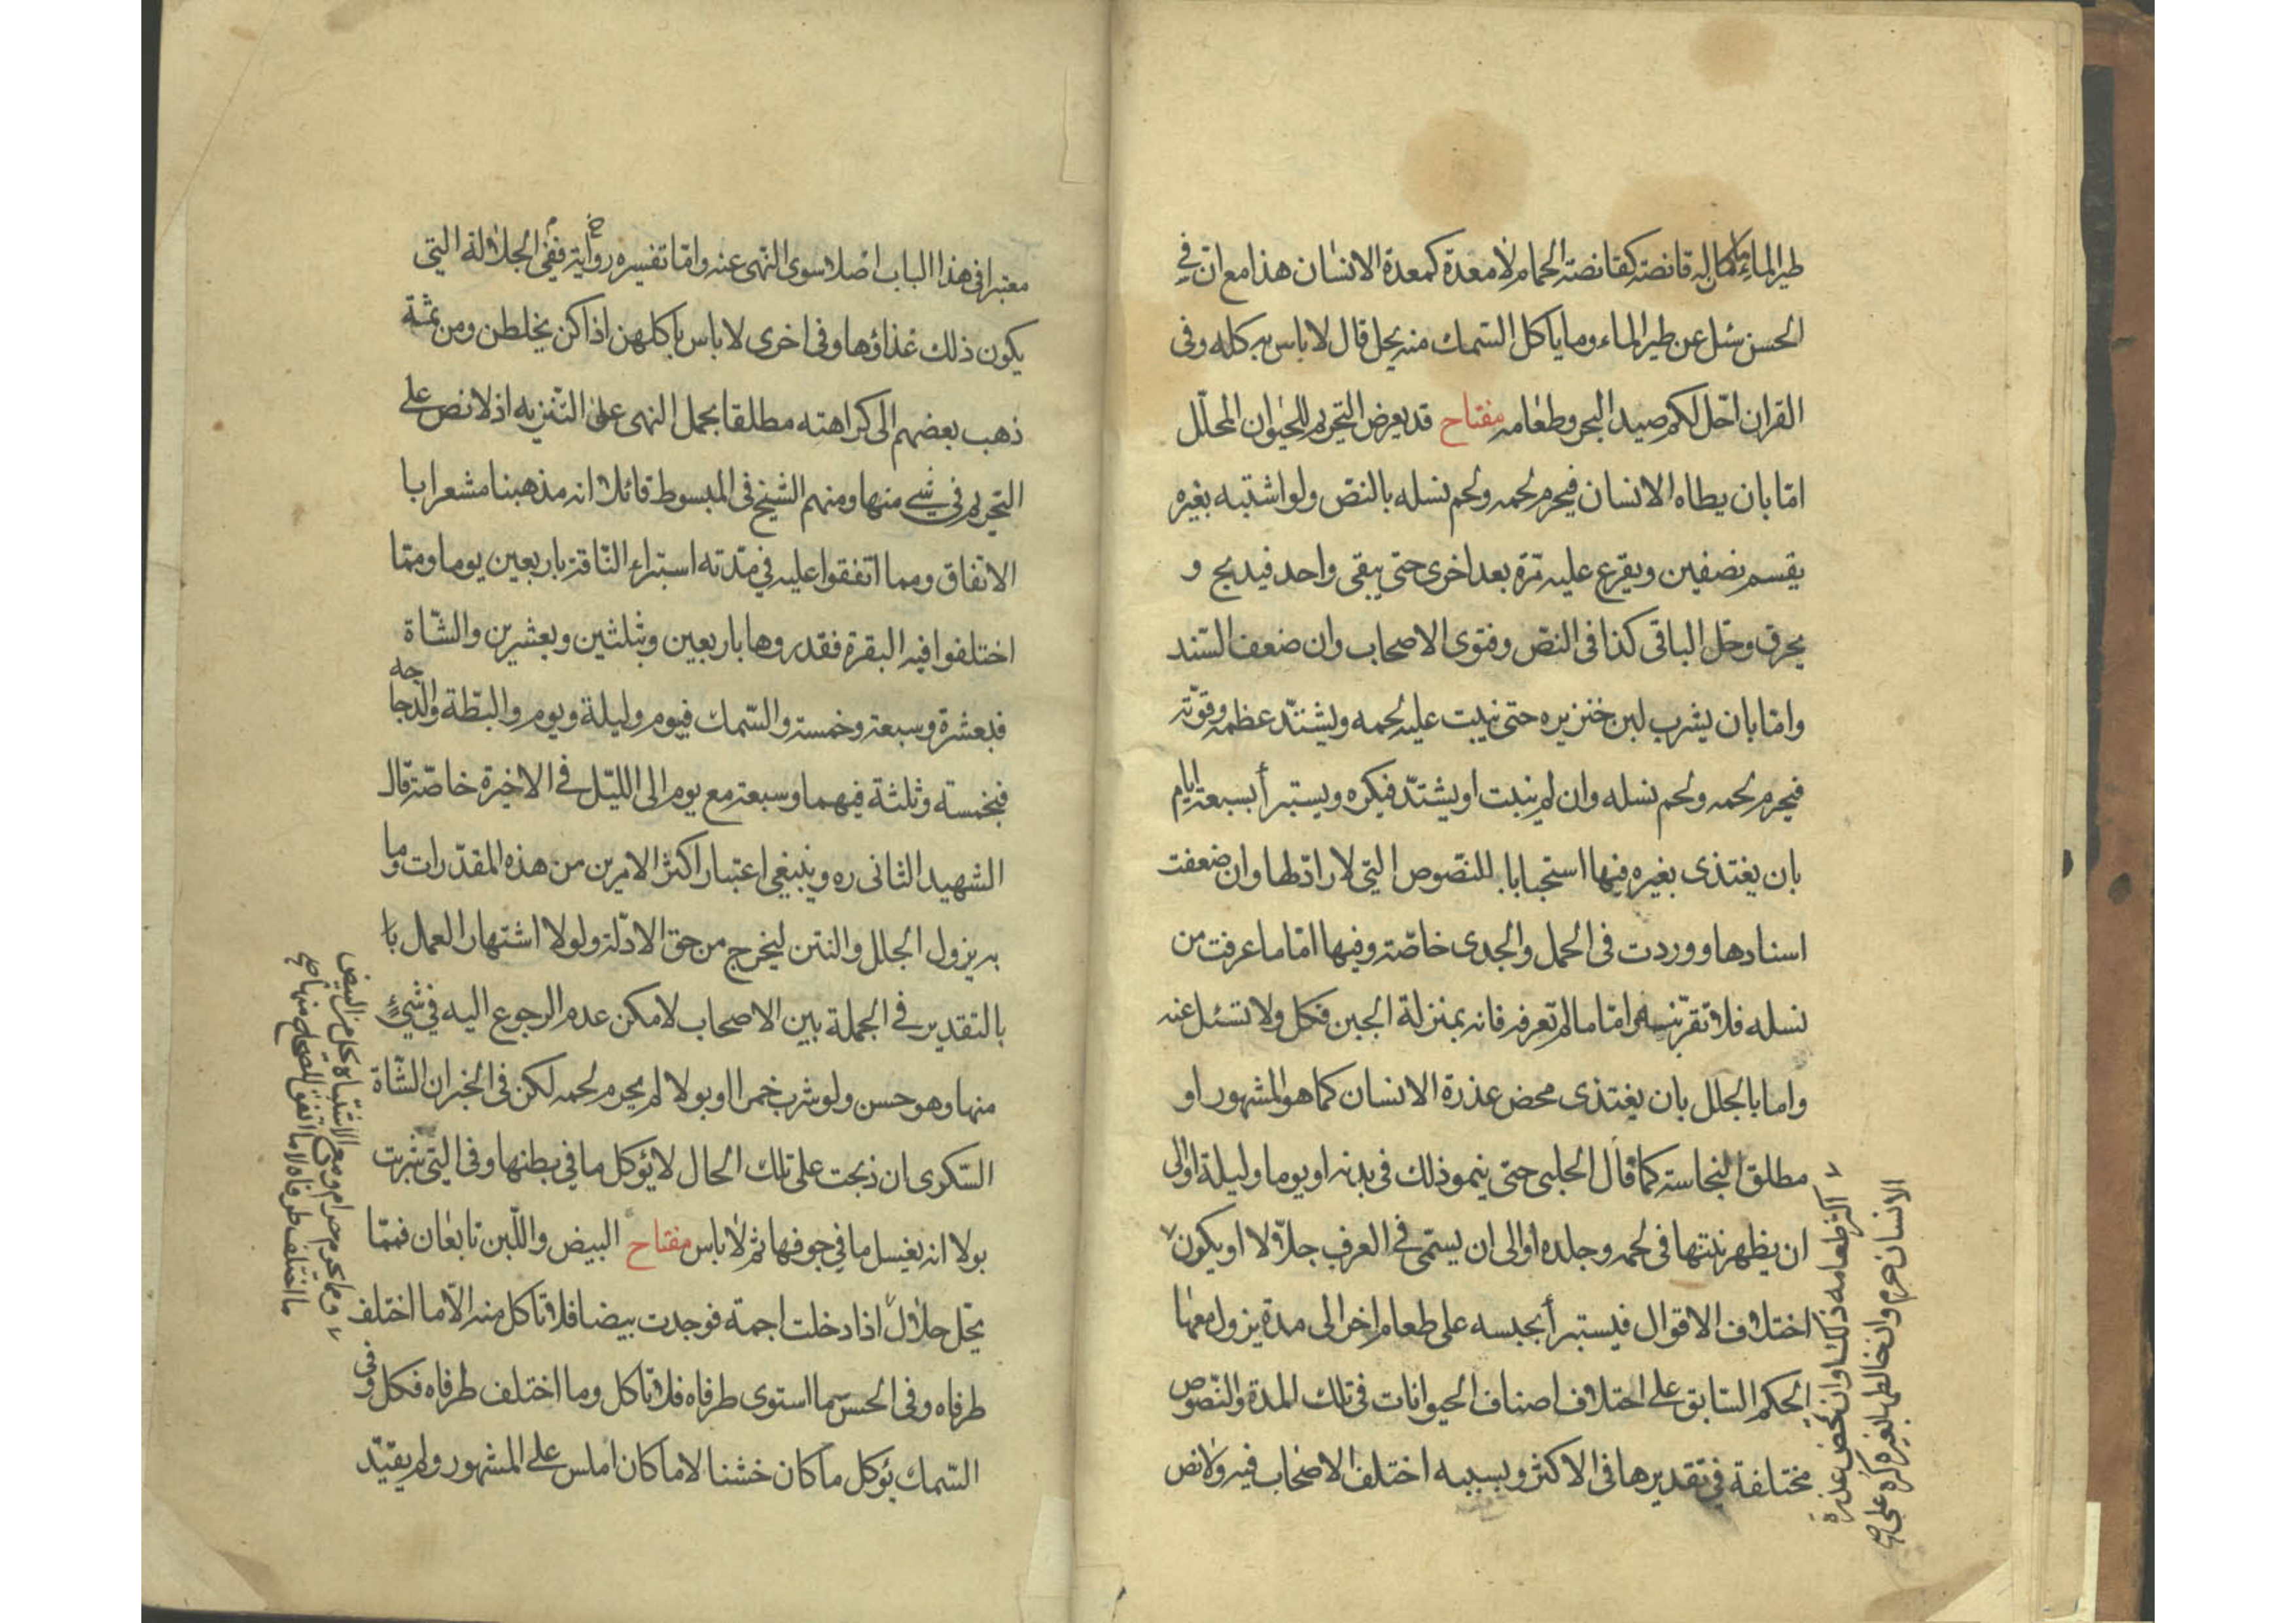 طير الماء ما كان له قانصة كقانصة الحمام لا معدة كمعدة الانسان هذا مع ان في
الحسن سئل عن طير الماء وما ياكل السمك منه يحل قال لا باس به كله وفى
القران احل لكم صيد البحر وطعامه مفتاح قد يعرض التحريم للحيوان المحلّل
امّا بان يطاه الانسان فيحرم لحمه ولحم نسله بالنص ولو اشتبه بغيره
يقسم نصفين ويقرع عليه مرّة بعد اخرى حتى يبقى واحد فيذبح و
يحرق وحل الباقى كذا فى النص وفتوى الاصحاب وان ضعف السّند
وامّا بان يشرب لبن خنزيره حتى ينبت عليه لحمه ويشتدّ عظمه وقوّته
فيحرم لحمه ولحم نسله وان لم ينبت او يشتدّ فيكره ويستبرأ بسبعة ايام
بان يغتذى بغيره فيها استحبابا للنصوص التي لا رادّ لها وان ضعفت
اسنادها ووردت فى الحمل والجدى خاصّة وفيها امّا ما عرفت من
نسله فلا تقربنه وامّا ما لم تعرفه فانه بمنزلة الجبن فكل ولا تسئل عنه
واما بالجلل بان يغتذى محض عذرة الانسان كما هو المشهور او
مطلق النجاسة كما قال الحلبى حتى ينمو ذلك فى بدنه او يوما وليلة او الى
ان يظهر نتنها فى لحمه وجلده او الى ان يسمّى فى العرف جلّالا او يكون
اكثر طعامه ذلك وان محض عذرة
الانسان حرم وان خالطها بغيره كره على
اختلاف الاقوال فيستبرأ بحبسه على طعام اخر الى مدة يزول معها
الحكم السّابق على اختلاف اصناف الحيوانات فى تلك المدة والنّصوص
مختلفة فى تقديرها فى الاكثر وبسببه اختلف الاصحاب فيه ولا نص
معتبرا فى هذا الباب اصلا سوى النهى عنه وامّا تفسيره رواية ففى الجلالة التي
يكون ذلك غذاؤها وفى اخرى لا باس باكلهن اذا كن يخلطن ومن ثمّة
ذهب بعضهم الى كراهته مطلقا بحمل النهى على التنزيه اذ لا نص على
التحريم فى شىء منها ومنهم الشيخ فى المبسوط قائلا انه مذهبنا مشعرا با
الاتفاق ومما اتفقوا عليه فى مدّته استبراء النّاقة باربعين يوما وممّا
اختلفوا فيه البقرة فقدروها باربعين وبثلثين وبعشرين والشّاة
فبعشرة وسبعة وخمسة والسّمك فيوم وليلة ويوم والبطّة والدجاجه
فبخمسة وثلثة فيهما وسبعة مع يوم الى الليل فى الاخيرة خاصّة قال
الشهيد الثانى ره وينبغى اعتبار اكثر الامرين من هذه المقدّرات وما
به يزول الجلل والنتن ليخرج من حق الادلّة ولولا اشتهار العمل با
بالتقدير فى الجملة بين الاصحاب لامكن عدم الرجوع اليه فى شىء
منها وهو حسن ولو شرب خمرا او بولا لم يحرم لحمه لكن فى الخبر ان الشّاة
السّكرى ان ذبحت على تلك الحال لا يؤكل ما فى بطنها وفى التي شربت
بولا انه يغسل ما فى جوفها ثم لا باس مفتاح البيض واللّبن تابعان فممّا
يحل حلال
ومما يحرم حرام ومع الاشتباه كل من البيض
ما اختلف طرفاه لا ما اتفق للصحاح منها
اذا دخلت اجمة فوجدت بيضا فلا تاكل منه الّا ما اختلف
طرفاه وفى الحسن ما استوى طرفاه فلا تاكل وما اختلف طرفاه فكل وفى
السّمك يؤكل ما كان خشنا لا ما كان املس على المشهور ولم يقيّد